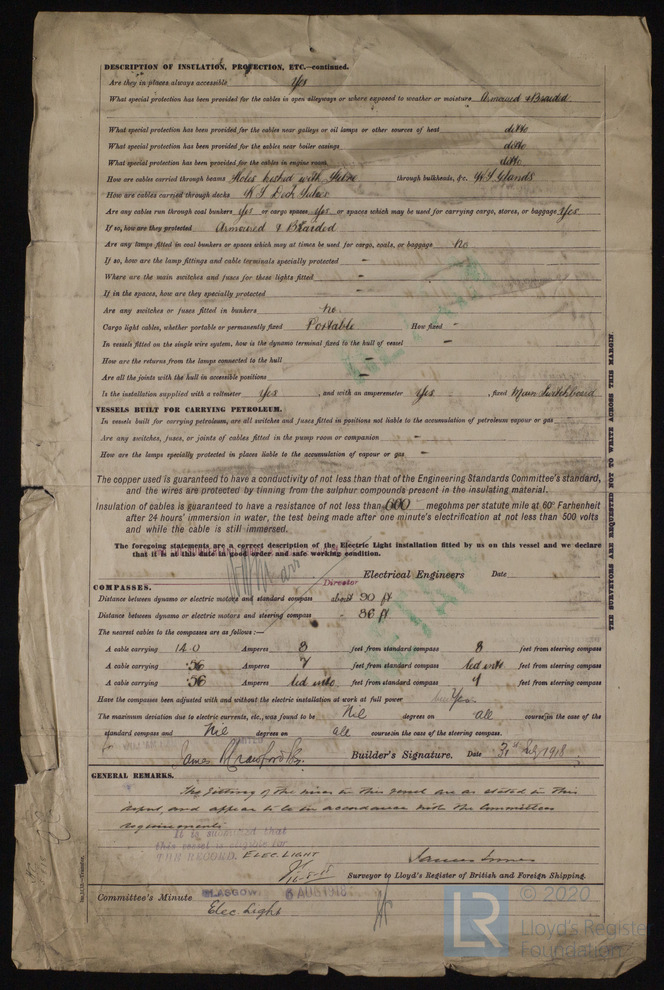 DESCRIPTION OF INSULATION, PROTECTION, ETC.—continued.
Are they in places always accessible Yes
What special protection has been provided for the cables in open alleyways or where exposed to weather or moisture Armoured & Braided
What special protection has been provided for the cables near galleys or oil lamps or other sources of heat ditto
What special protection has been provided for the cables near boiler casings ditto
What special protection has been provided for the cables in engine room ditto
How are cables carried through beams Holes bushed with Fibre through bulkheads, &c. W.T. Glands
How are cables carried through decks W.T. Deck Tubes
Are any cables run through coal bunkers Yes or cargo spaces Yes or spaces which may be used for carrying cargo, stores, or baggage Yes
If so, how are they protected Armoured & Braided
Are any lamps fitted in coal bunkers or spaces which may at times be used for cargo, coals, or baggage No
If so, how are the lamp fittings and cable terminals specially protected -
Where are the main switches and fuses for these lights fitted -
If in the spaces, how are they specially protected -
Are any switches or fuses fitted in bunkers No
Cargo light cables, whether portable or permanently fixed Portable How fixed -
In vessels fitted on the single wire system, how is the dynamo terminal fixed to the hull of vessel -
How are the returns from the lamps connected to the hull -
Are all the joints with the hull in accessible positions -
Is the installation supplied with a voltmeter Yes , and with an amperemeter Yes , fixed Main Switchboard
VESSELS BUILT FOR CARRYING PETROLEUM.
In vessels built for carrying petroleum, are all switches and fuses fitted in positions not liable to the accumulation of petroleum vapour or gas
Are any switches, fuses, or joints of cables fitted in the pump room or companion -
How are the lamps specially protected in places liable to the accumulation of vapour or gas -
The copper used is guaranteed to have a conductivity of not less than that of the Engineering Standards Committee's standard,
and the wires are protected by tinning from the sulphur compounds present in the insulating material.
Insulation of cables is guaranteed to have a resistance of not less than 600 megohms per statute mile at 60° Farhenheit
after 24 hours' immersion in water, the test being made after one minute's electrification at not less than 500 volts
and while the cable is still immersed.
The foregoing statements are a correct description of the Electric Light installation fitted by us on this vessel and we declare
that it is at this date in good order and safe working condition.
Director Electrical Engineers Date
COMPASSES.
Distance between dynamo or electric motors and standard compass about 90 ft
Distance between dynamo or electric motors and steering compass " 86 ft
The nearest cables to the compasses are as follows:—
A cable carrying 14.0 Amperes 8 feet from standard compass 8 feet from steering compass
A cable carrying .56 Amperes 7 feet from standard compass led into feet from steering compass
A cable carrying .56 Amperes led into feet from standard compass 7 feet from steering compass
Have the compasses been adjusted with and without the electric installation at work at full power Yes
The maximum deviation due to electric currents, etc., was found to be Nil degrees on all course in the case of the
standard compass and Nil degrees on all course in the case of the steering compass.
Builder's Signature. Date 31st July 1918
GENERAL REMARKS.
The fitting of the wires in this vessel are as stated in this
report, and appear to be in accordance with the Committees
requirements
It is submitted that
this vessel is eligible for
THE RECORD. ELEC. LIGHT
James Innes
Surveyor to Lloyd's Register of British and Foreign Shipping.
Committee's Minute GLASGOW 6 AUG 1918
Elec Light
THE SURVEYORS ARE REQUESTED NOT TO WRITE ACROSS THIS MARGIN.
LR
© 2020
Lloyd's Register
Foundation